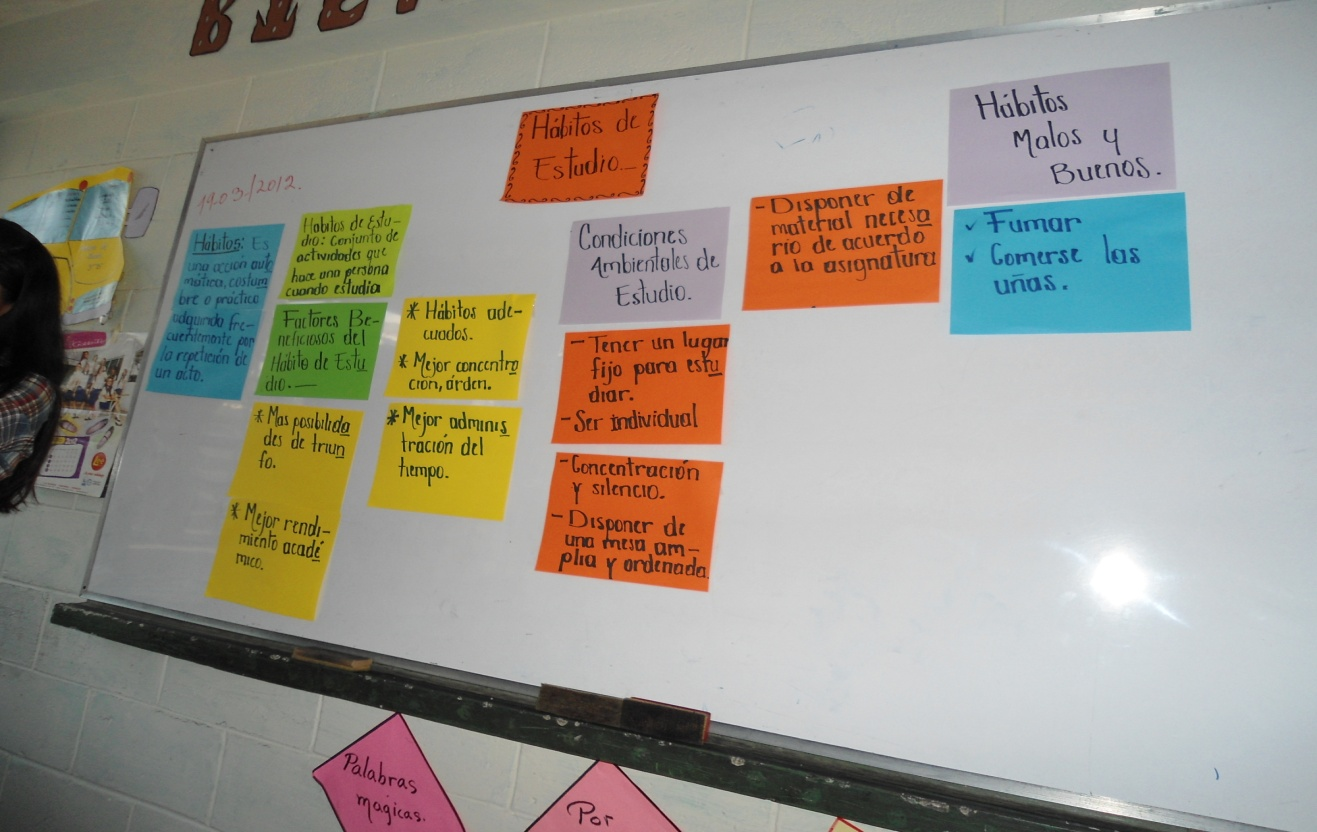 Hábitos de
Estudio._
19.03/2012.
Habitos: Es
una acción aut
mática, costum
bre o práctica
adquirida fre-
cuentemente por
la repetición de
un acto.
Habitos de Estu-
dio: Conjunto de
actividades que
hace una persona
cuando estudia
Factores Be-
neficiosos del
Hábito de Estu
dio.__
* Mas posibilida
des de triun
fo.
* Mejor rendi-
miento acadé
mico.
* Hábitos ade-
cuados.
* Mejor concentra
ción, orden.
* Mejor adminis
tración del
tiempo.
Condiciones
Ambientales de
Estudio.
- Tener un lugar
fijo para estu
diar.
- Ser individual
- Concentración
y silencio.
- Disponer de
una mesa am-
plia y ordenada.
- Disponer de
material necesa
rio de acuerdo
a la asignatura
Hábitos
Malos y
Buenos.
✓ Fumar
✓ Comerse las
uñas.
Palabras
magicas.
Por